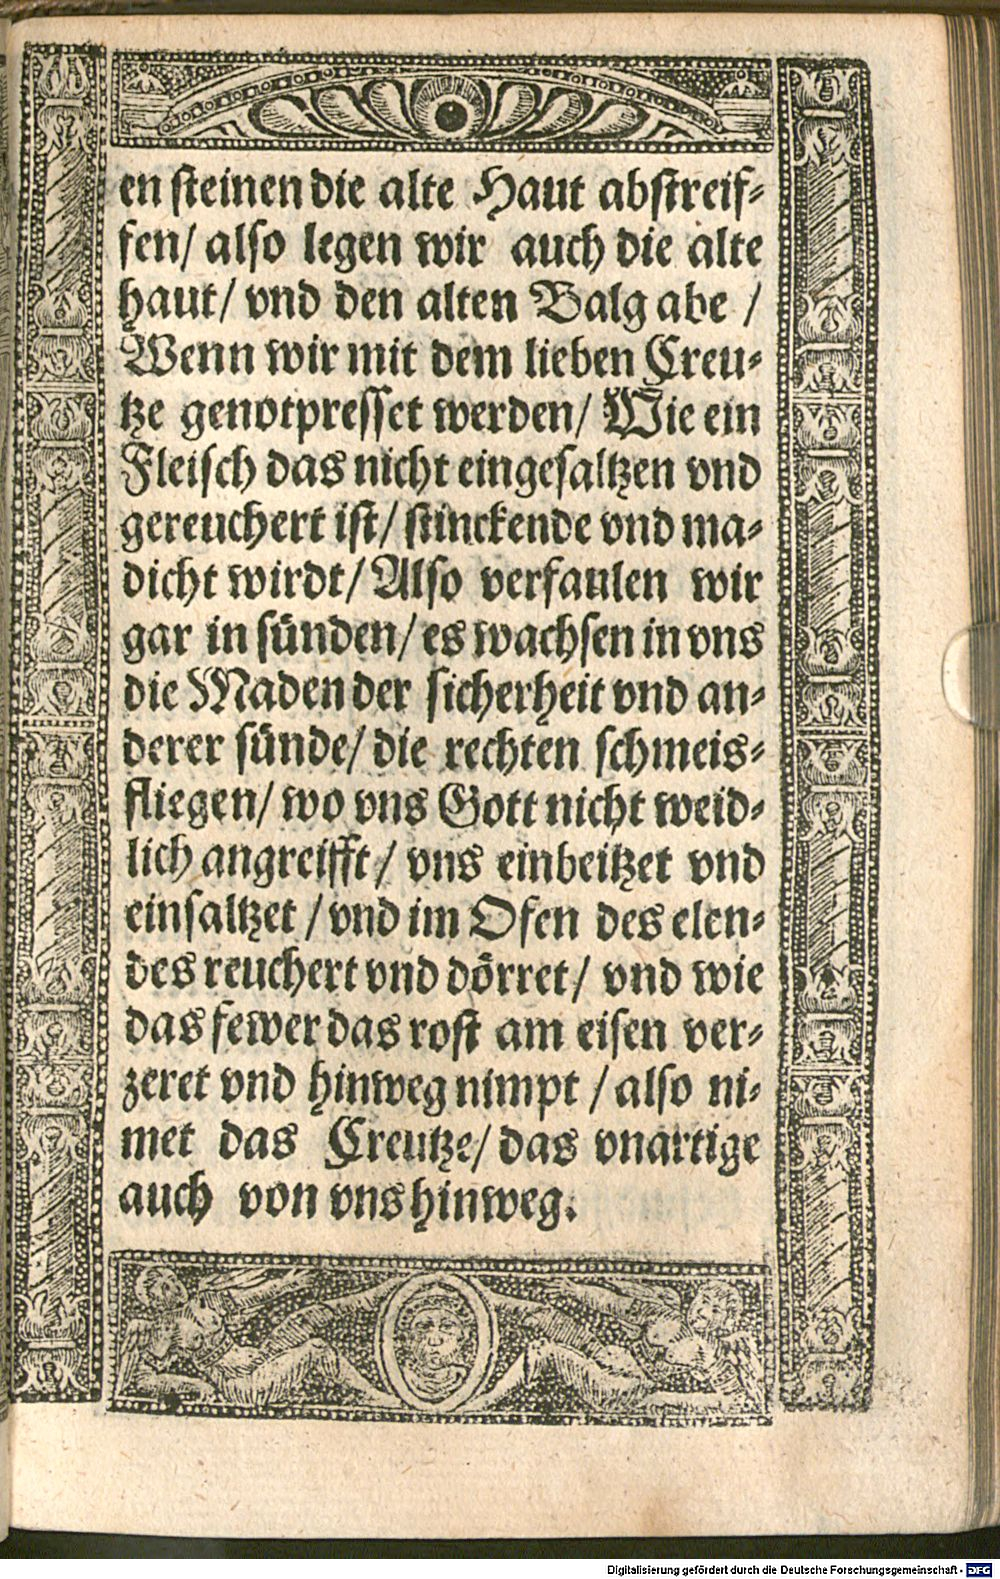 en steinen die alte Haut abstreif-
fen/ also legen wir auch die alte
haut/ vnd den alten Balg abe /
Wenn wir mit dem lieben Creu-
tze genotpresset werden/ Wie ein
Fleisch das nicht eingesaltzen vnd
gereuchert ist/ stinckende vnd ma-
dicht wirdt/ Also verfaulen wir
gar in sünden/ es wachsen in vns
die Maden der sicherheit vnd an-
derer sünde/ die rechten schmeis-
fliegen/ wo vns Gott nicht weid-
lich angreifft/ vns einbeitzet vnd
einsaltzet / vnd im Ofen des elen-
des reuchert vnd dörret/ vnd wie
das fewer das rost am eisen ver-
zeret vnd hinweg nimpt / also ni-
met das Creutze/ das vnartige
auch von vns hinweg.
Digitalisierung gefördert durch die Deutsche Forschungsgemeinschaft - DFG